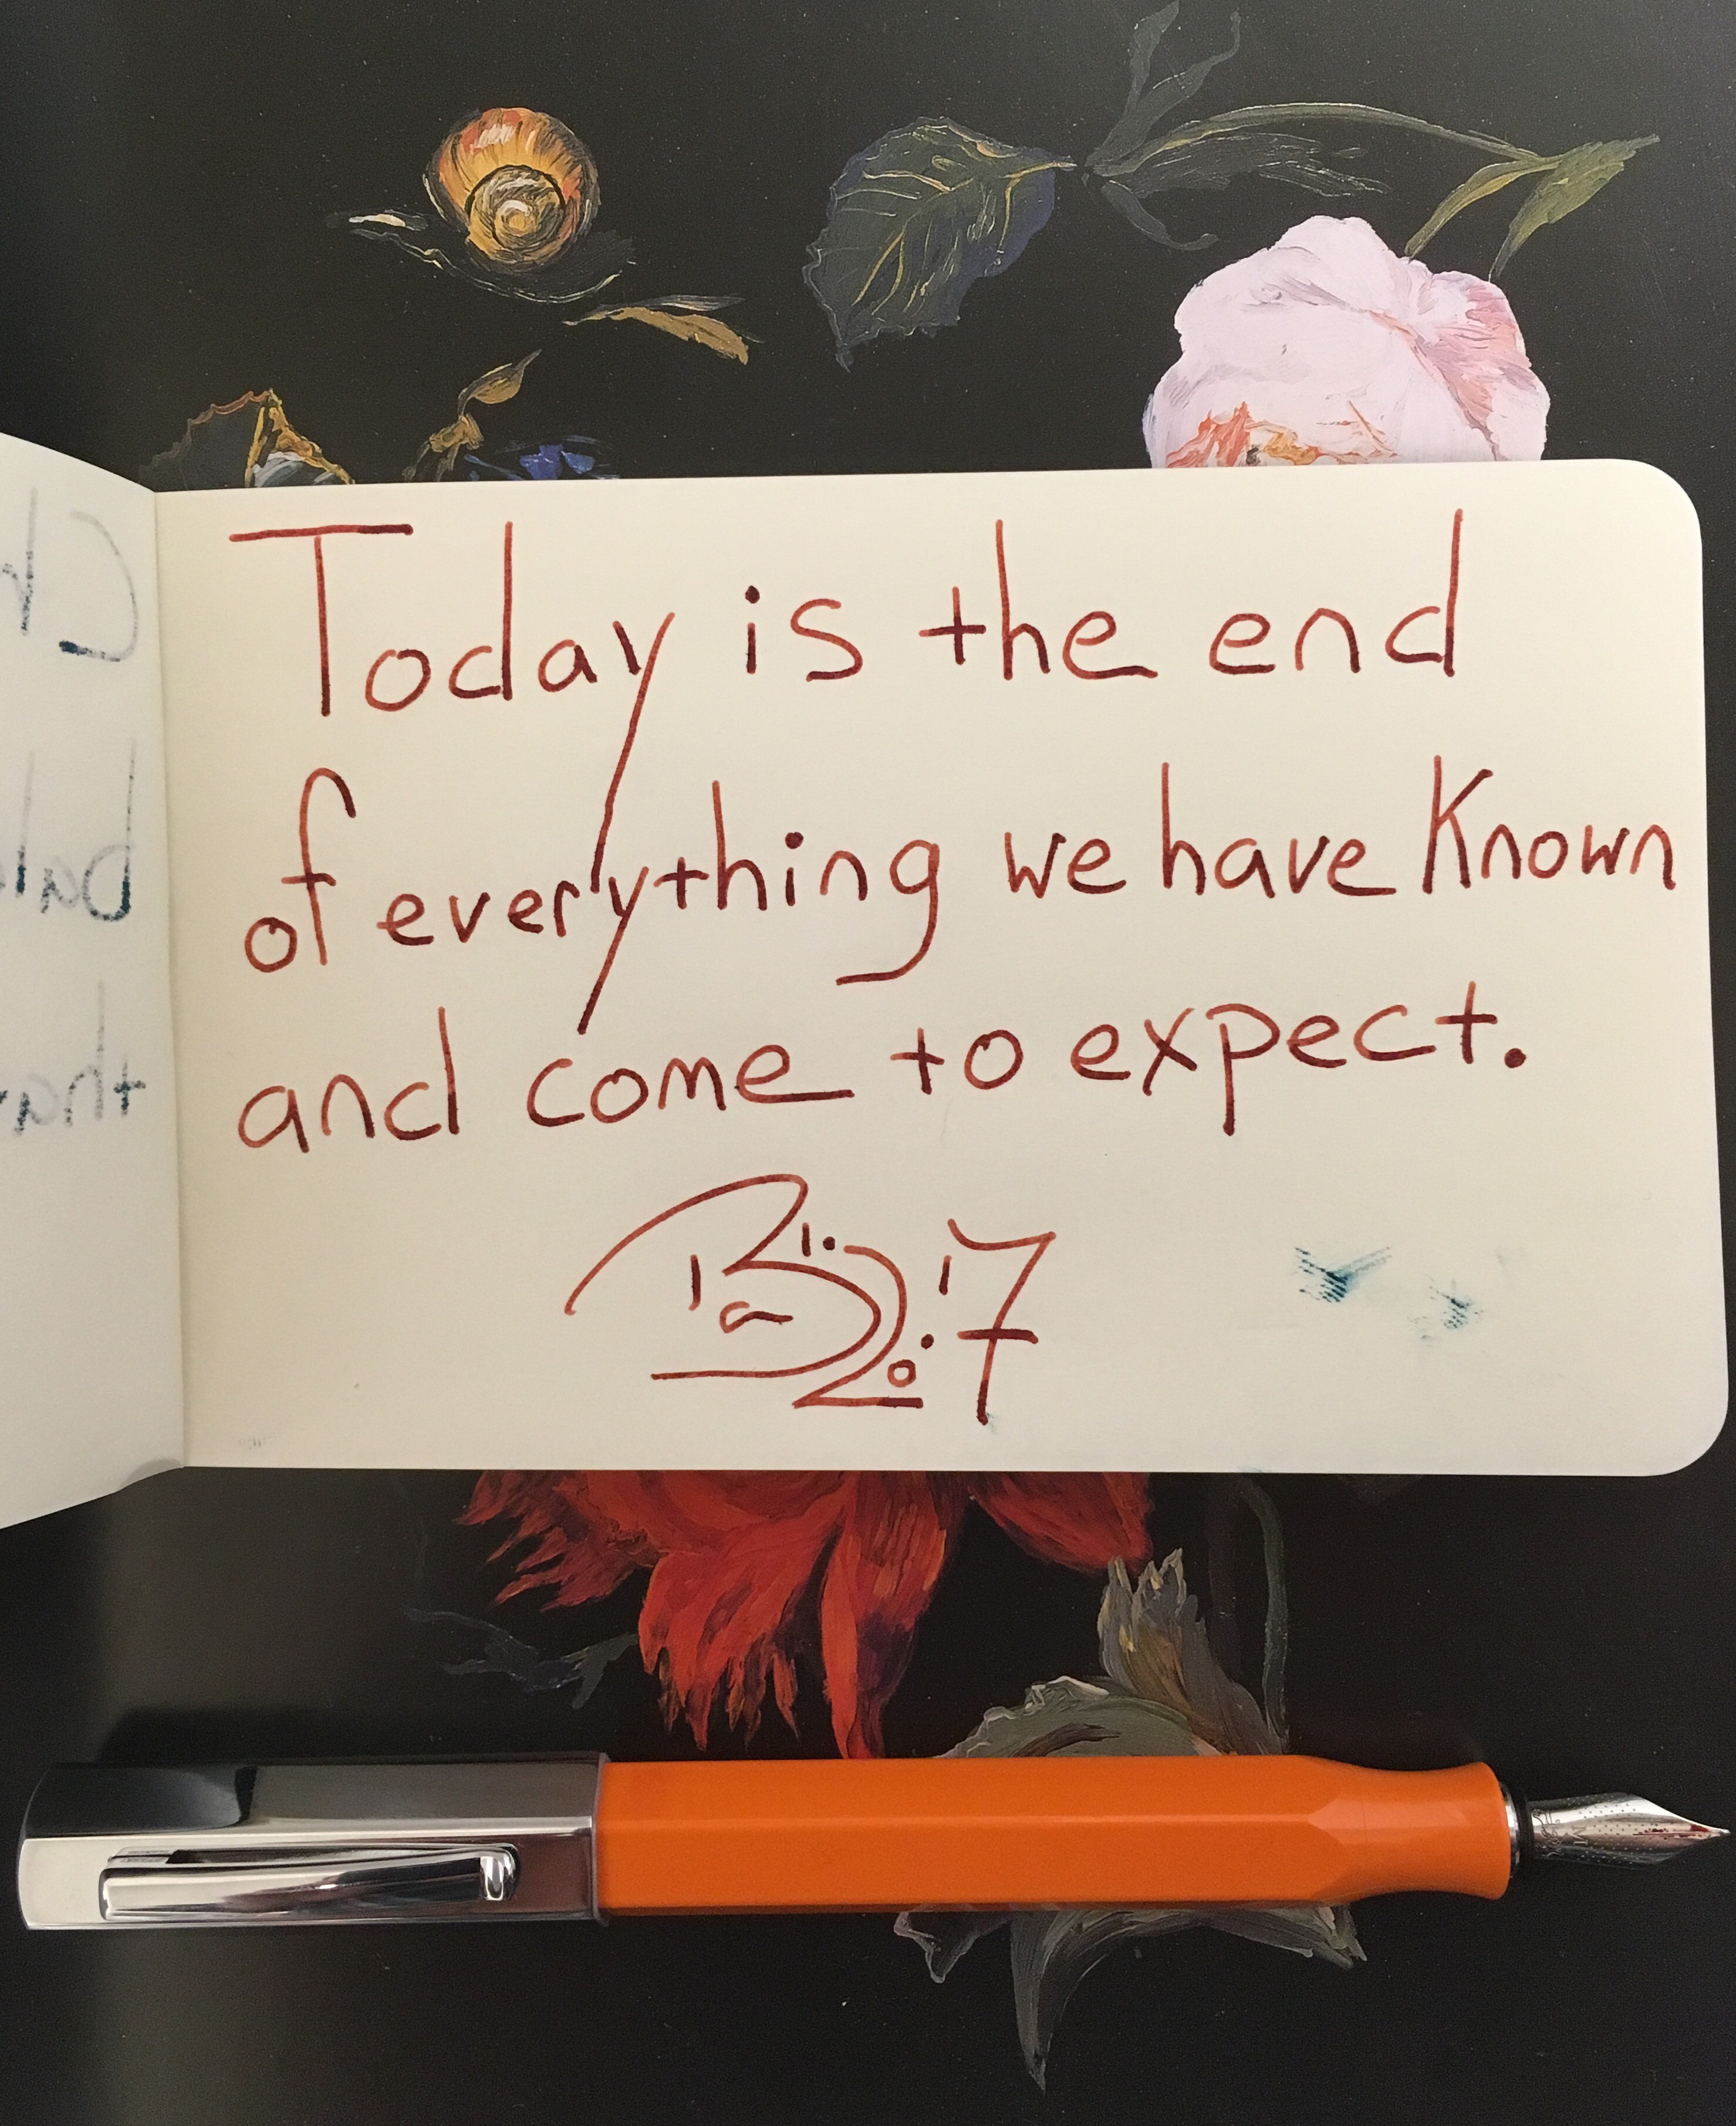 Today is the end
of everything we have Known
and come to expect.